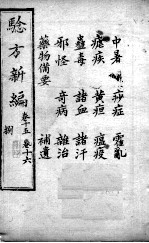 中暑 痧症 霍亂
瘧疾 黄疸 瘟疫
蠱毒 諸血 諸汗
邪怪 奇病 雜治
藥物備要 補遺
驗方新編
卷十五 卷十六
捌